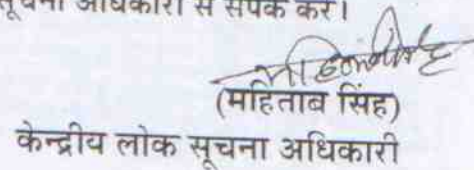 सूचना अधिकारी से संपर्क करें।
(महिताब सिंह)
केन्द्रीय लोक सूचना अधिकारी